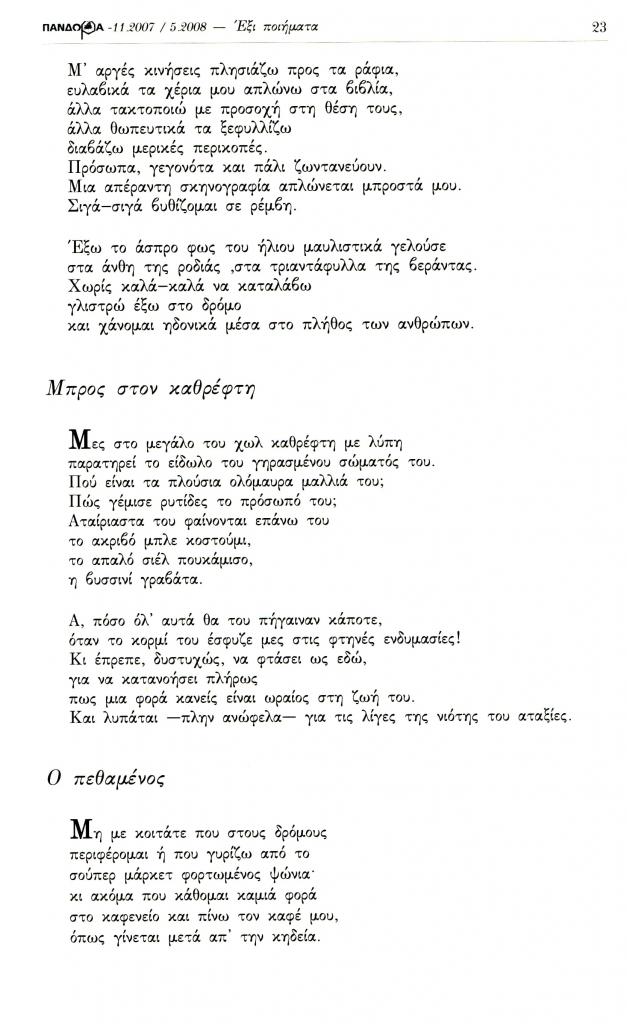 ΠΑΝΔΩΡΑ -11.2007 / 5.2008 — Ἕξι ποιήματα 23
Μ' αργές κινήσεις πλησιάζω προς τα ράφια,
ευλαβικά τα χέρια μου απλώνω στα βιβλία,
άλλα τακτοποιώ με προσοχή στη θέση τους,
άλλα θωπευτικά τα ξεφυλλίζω
διαβάζω μερικές περικοπές.
Πρόσωπα, γεγονότα και πάλι ζωντανεύουν.
Μια απέραντη σκηνογραφία απλώνεται μπροστά μου.
Σιγά—σιγά βυθίζομαι σε ρέμβη.
Έξω το άσπρο φως του ήλιου μαυλιστικά γελούσε
στα άνθη της ροδιάς ,στα τριαντάφυλλα της βεράντας.
Χωρίς καλά—καλά να καταλάβω
γλιστρώ έξω στο δρόμο
και χάνομαι ηδονικά μέσα στο πλήθος των ανθρώπων.
Μπρος στον καθρέφτη
Μες στο μεγάλο του χωλ καθρέφτη με λύπη
παρατηρεί το είδωλο του γηρασμένου σώματός του.
Πού είναι τα πλούσια ολόμαυρα μαλλιά του;
Πώς γέμισε ρυτίδες το πρόσωπό του;
Αταίριαστα του φαίνονται επάνω του
το ακριβό μπλε κοστούμι,
το απαλό σιέλ πουκάμισο,
η βυσσινί γραβάτα.
Α, πόσο όλ' αυτά θα του πήγαιναν κάποτε,
όταν το κορμί του έσφυζε μες στις φτηνές ενδυμασίες!
Κι έπρεπε, δυστυχώς, να φτάσει ως εδώ,
για να κατανοήσει πλήρως
πως μια φορά κανείς είναι ωραίος στη ζωή του.
Και λυπάται —πλην ανώφελα— για τις λίγες της νιότης του αταξίες.
Ο πεθαμένος
Μη με κοιτάτε που στους δρόμους
περιφέρομαι ή που γυρίζω από το
σούπερ μάρκετ φορτωμένος ψώνια·
κι ακόμα που κάθομαι καμιά φορά
στο καφενείο και πίνω τον καφέ μου,
όπως γίνεται μετά απ' την κηδεία.